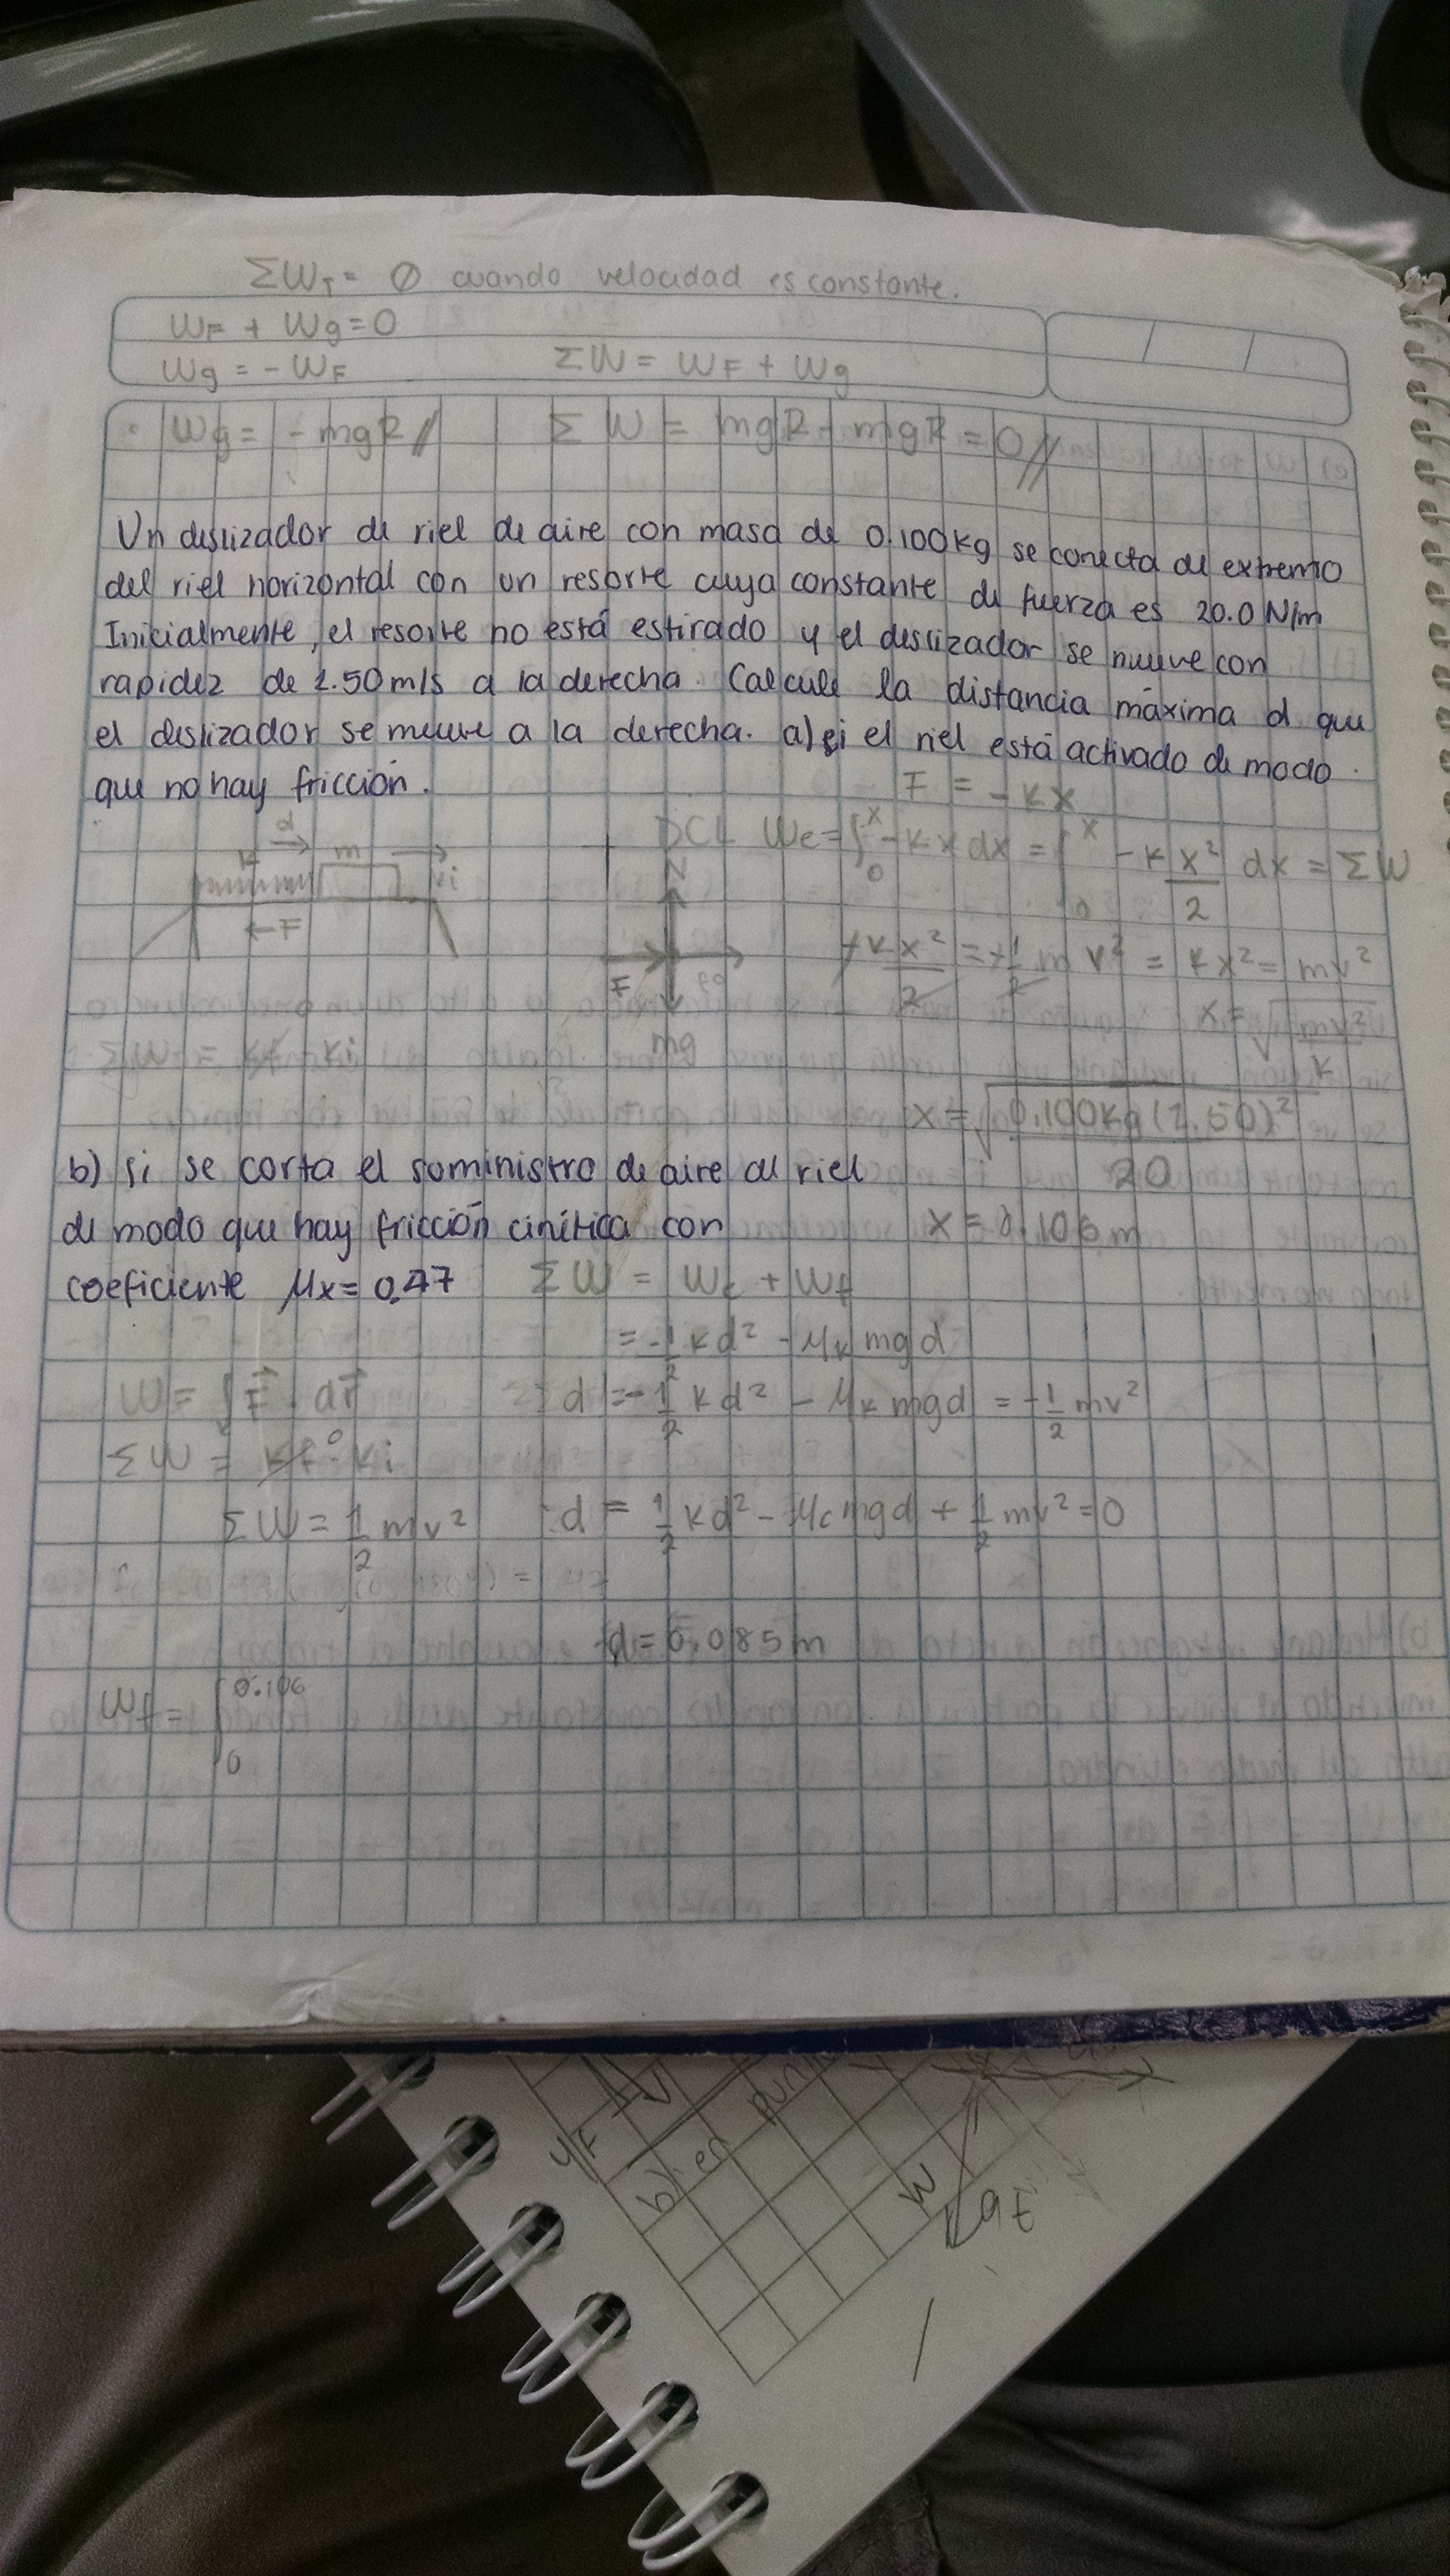 ΣW_T = 0 cuando velocidad es constante.
W_F + W_g = 0
W_g = - W_F ΣW = W_F + W_g
W_g = - mgR // ΣW = mgR - mgR = 0 //
Un deslizador de riel de aire con masa de 0.100kg se conecta al extremo
del riel horizontal con un resorte cuya constante de fuerza es 20.0 N/m
Inicialmente, el resorte no está estirado y el deslizador se mueve con
rapidez de 1.50 m/s a la derecha. Calcule la distancia máxima d que
el deslizador se mueve a la derecha. a) si el riel está activado de modo
que no hay fricción.
F = -kx
DCL We = ∫₀ˣ -kx dx = ∫₀ˣ -k x²/2 dx = ΣW
d
k m vi
←F
N
F
mg
+kx²/2 = +1/2 m v² = kx² = mv²
x = √(mv²/k)
ΣW = kf - ki
x = √(0.100kg (1.50)²/20)
x = 0.106 m
b) si se corta el suministro de aire al riel
de modo que hay fricción cinética con
coeficiente μx = 0.47 ΣW = We + Wf
= -1/2 kd² - μk mgd
W = ∫F⃗ · dr⃗ d = -1/2 kd² - μk mgd = -1/2 mv²
ΣW = kf⁰ - ki
ΣW = 1/2 mv² d = 1/2 kd² - μc mgd + 1/2 mv² = 0
d = 0.085 m
Wf = ∫₀^0.106
bien
W